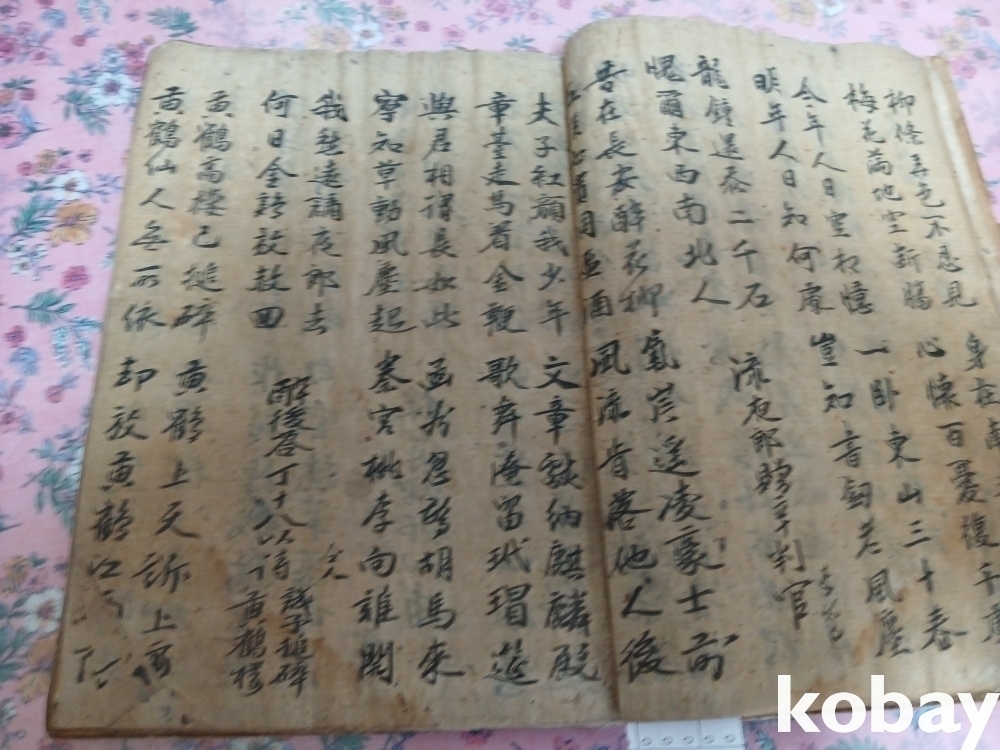 柳條弄色不忍見 身在南
梅花滿地空斷腸 心懷百憂復千慮
今年人日空相憶 一卧東山三十春
明年人日知何處 豈知書劍老風塵
龍鍾還忝二千石 流夜郎贈辛判官
愧爾東西南北人
昔在長安醉花柳 氣岸遙凌豪士前
五侯七貴同盃酒 風流肯落他人後
夫子紅顔我少年 文章獻納麒麟殿
章臺走馬着金鞭 歌舞淹留玳瑁筵
與君相謂長如此 函谷忽驚胡馬來
寧知草動風塵起 秦宮桃李向誰開
我愁遠謫夜郎去 仝人
何日金鷄放赦回 醉後答丁十八以詩
譏予搥碎
黃鶴樓
黃鶴高樓已搥碎 黃鶴上天訴上帝
黃鶴仙人無所依 却放黃鶴江
kobay